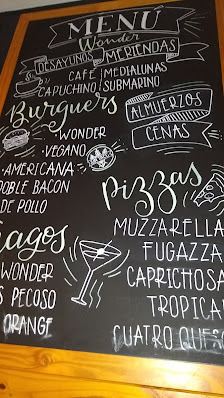 MENÚ
Wonder
DESAYUNOS MERIENDAS
CAFÉ MEDIALUNAS
CAPUCHINO SUBMARINO
Burguers
ALMUERZOS
CENAS
WONDER
VEGANO
AMERICANA
DOBLE BACON
DE POLLO
Pizzas
MUZZARELLA
FUGAZZA
CAPRICHOSA
TROPICA
CUATRO QUESO
agos
WONDER
PECOSO
ORANGE